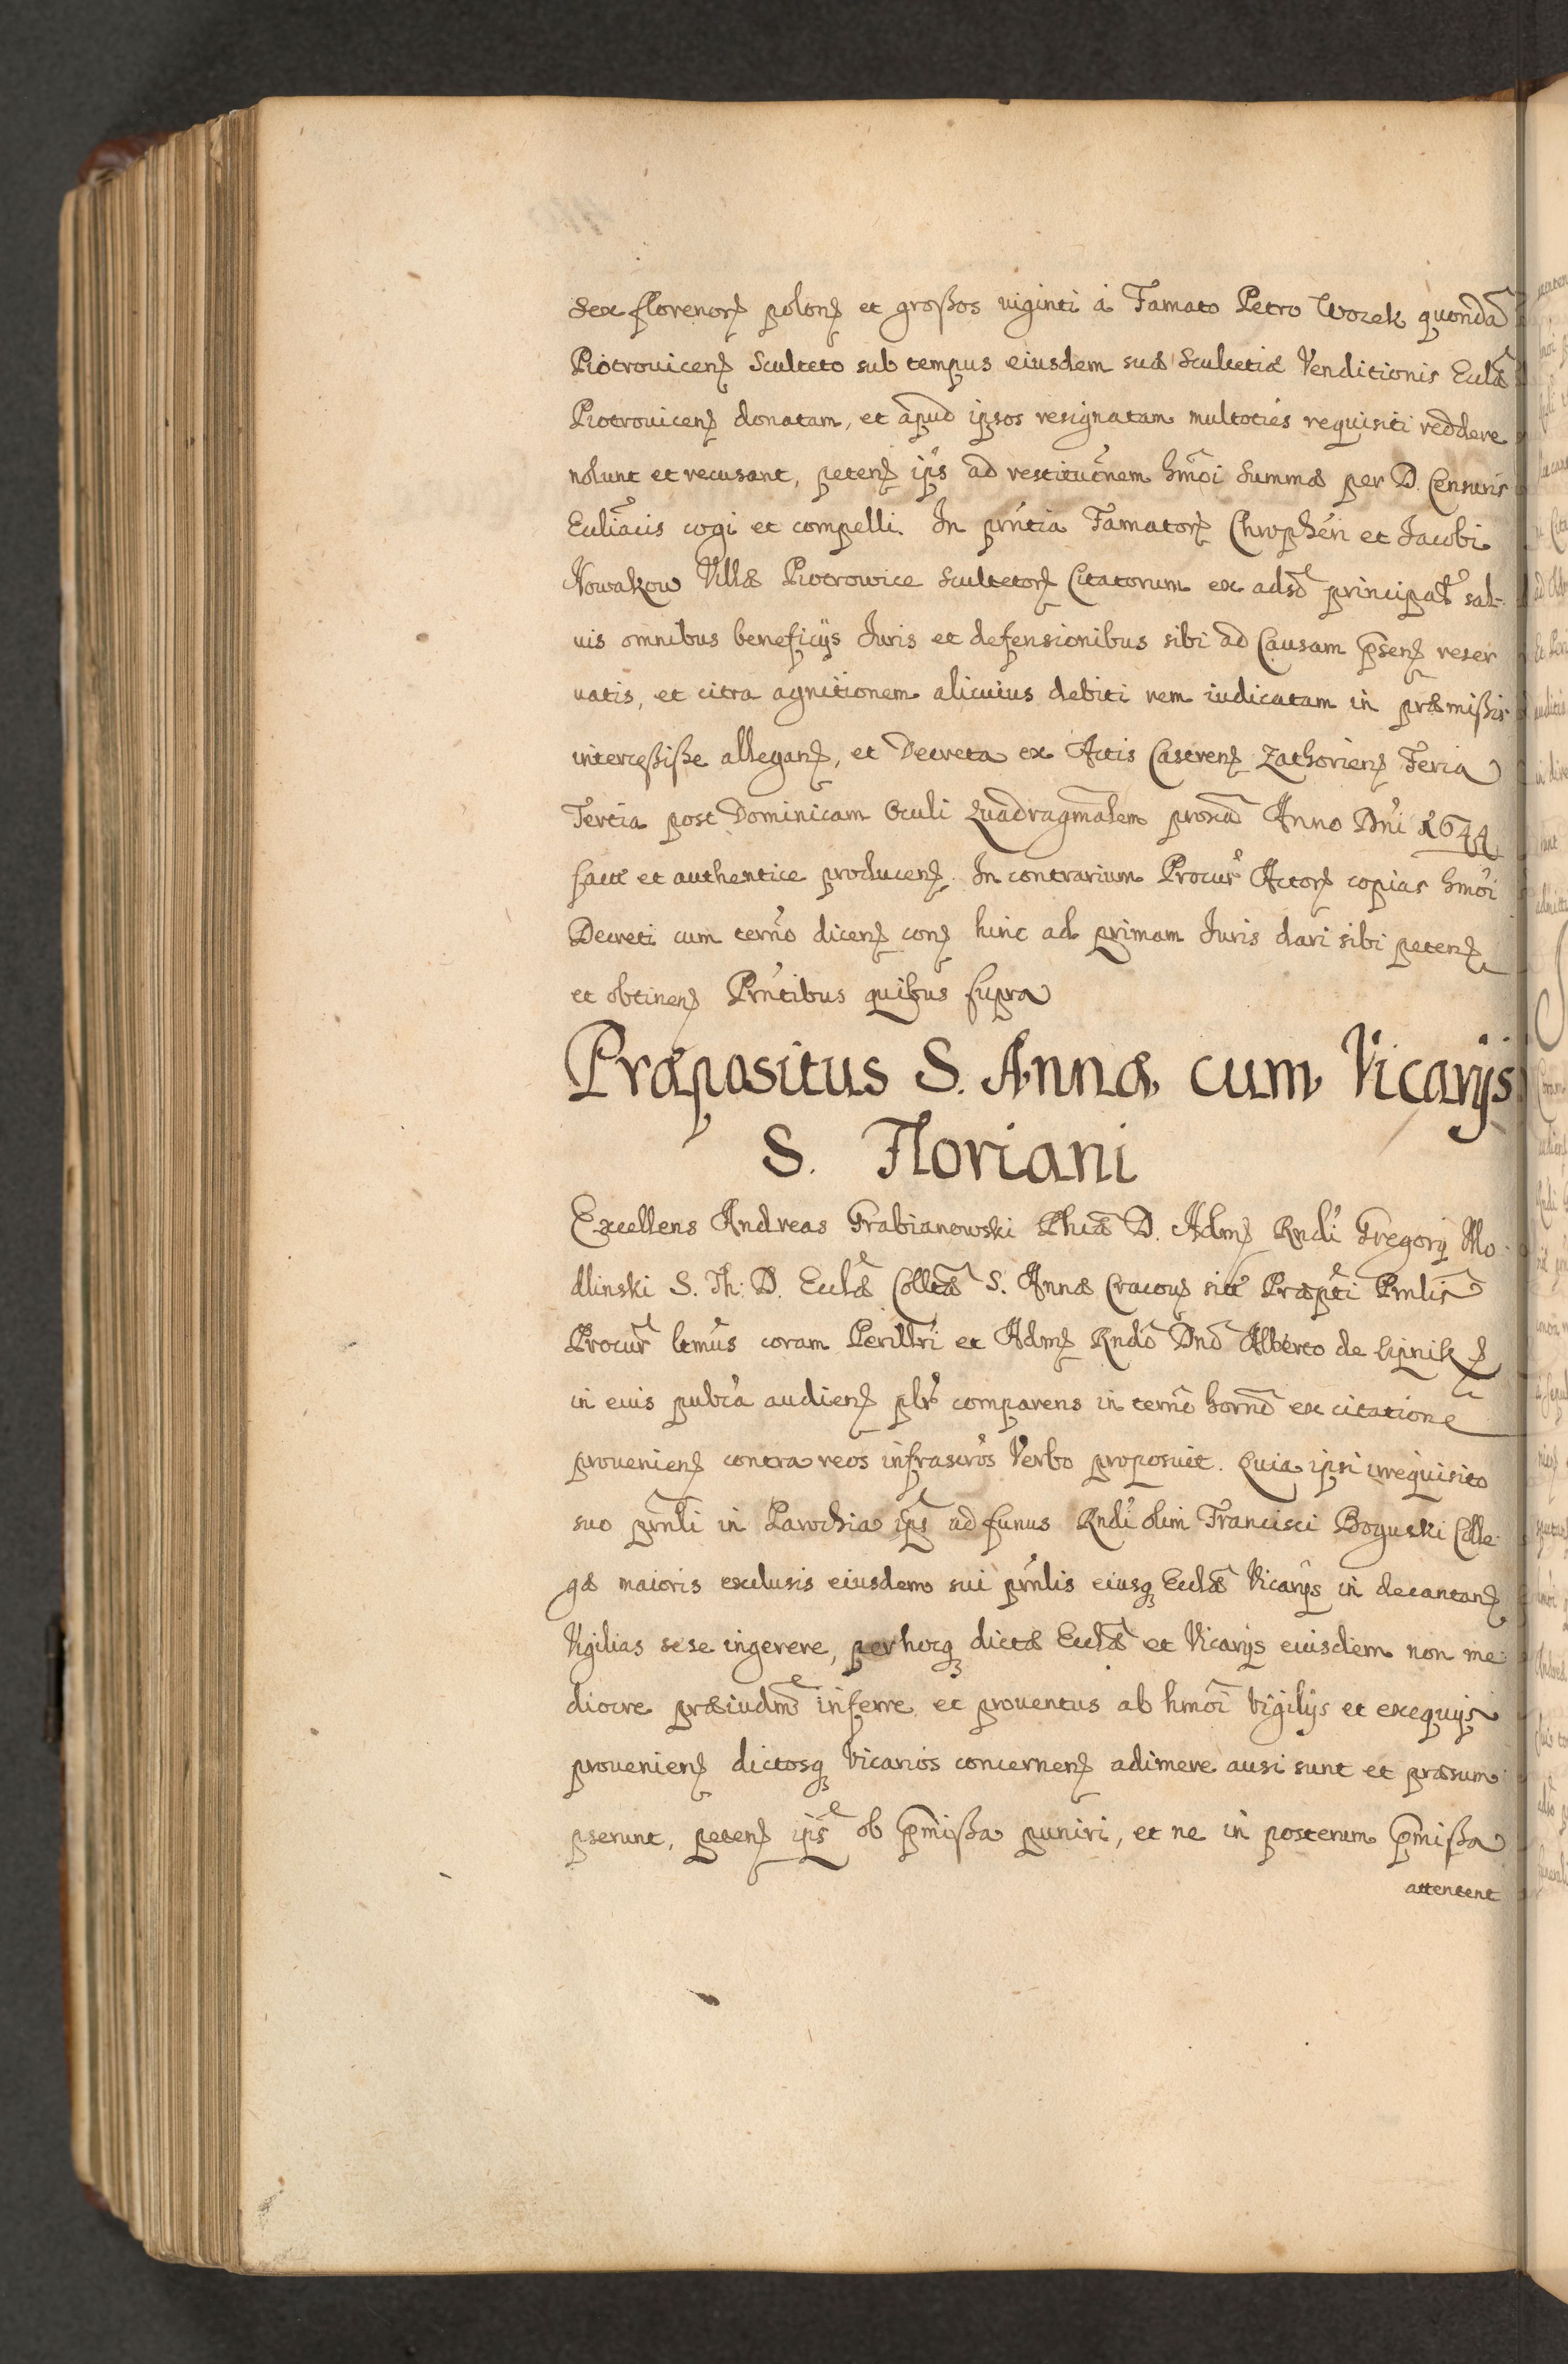 sex florenorꝫ polonꝫ et großos viginti à Famato Petro Wozek quondā
Piotrouicenꝫ Sculteto sub tempus eiusdem suæ Scultetiæ Venditionis Ecclæ
Piotrouicenꝫ donatam, et apud ipsos resignatam multoties requisiti reddere
nolunt et recusant, petenꝫ ip̄s ad restitut̄nem hm̄oi Summæ per D. Censuris
Eccliacis cogi et compelli. In pn̄tia Famatorꝫ Chrophēri et Jacobi
Nowakow Villæ Piotrowice Scultetorꝫ Citatorum ex adso principal̄ sal-
uis omnibus beneficijs Juris et defensionibus sibi ad Causam p̄senꝫ reser
uatis, et citra agnitionem alicuius debiti rem iudicatam in præmißis
interceßiße alleganꝫ, et Decreta ex Actis Castrenꝫ Zathorienꝫ Feria
Tertia post Dominicam Oculi Quadragm̄alem proxā Anno Dn̄i 1644
fact̄ et authentice producenꝫ. In contrarium Procur̄ Actorꝫ copias hm̄oi
Decreti cum term̄o dicenꝫ conꝫ hinc ad primam Juris dari sibi petenꝫ
et obtinenꝫ Pn̄tibus quibus supra
Præpositus S. Annæ cum Vicarijs
S. Floriani
Excellens Andreas Grabianowski Phiæ D. Admꝫ Rndi Gregorij Mo
dlinski S. Th: D. Ecclæ Colltæ S. Annæ Cracouꝫ sitt̄ Præpti Prnlis
Procur̄ ltmus coram Perillri et Admꝫ Rndo Dno Alberto de Lipnik
in eius pub̄ca audienꝫ plr̄ comparens in term̄o horno ex citatione
prouenienꝫ contra reos infrascros Verbo proposuit. Quia ipsi irrequisito
suo prnli in Parochia ips̄ ad funus Rndi olim Francisci Boguski Colle-
gæ maioris exclusis eiusdem sui prnlis eiusqꝫ Ecclæ Vicarijs in decantanꝫ
Vigilias sese ingerere, per hocqꝫ dictæ Ecclæ et Vicarijs eiusdem non me
diocre præiudm̄ inferre et prouentus ab hm̄oi Vigilijs et exequijs
prouenienꝫ dictosqꝫ Vicarios concernenꝫ adimere ausi sunt et præsum
pserunt, petenꝫ ips̄ ob p̄mißa puniri, et ne in posterum p̄mißa
attentent